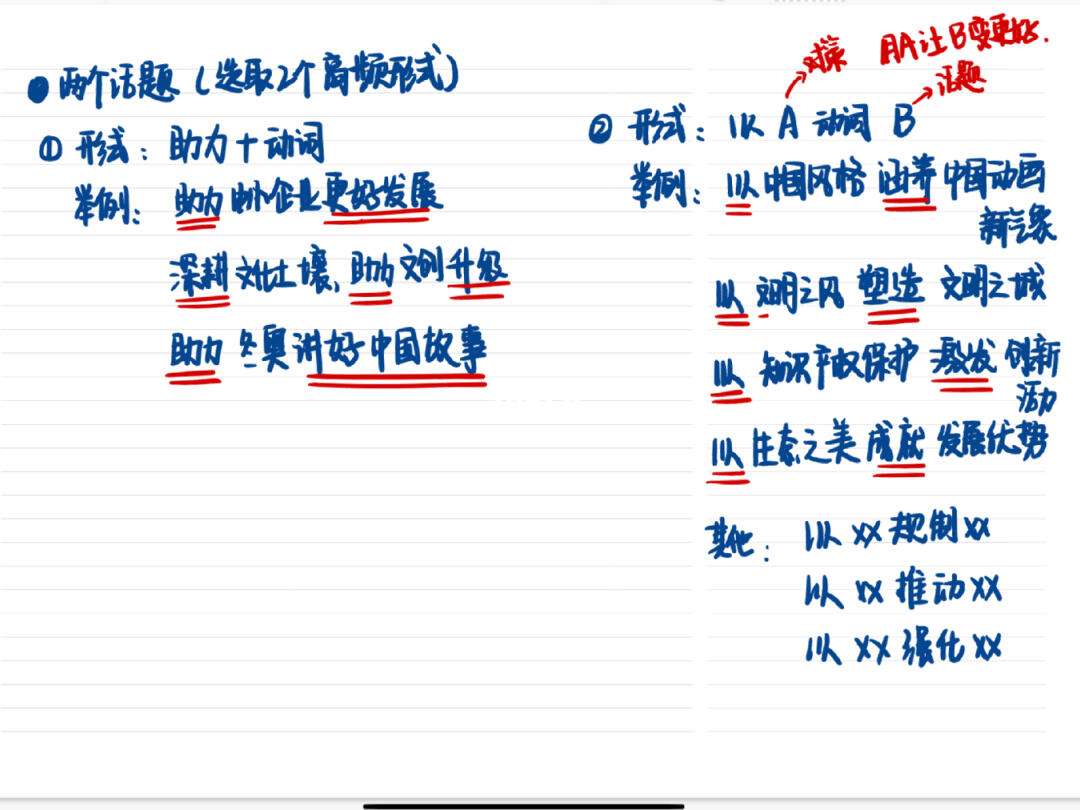 两个话题（选取2个高频形式）
① 形式：助力＋动词
举例：助力中小企业更好发展
深耕文化土壤，助力文创升级
助力冬奥讲好中国故事
对策 用A让B变更好.
话题
② 形式：以 A 动词 B
举例：以中国风格 涵养 中国动画
新气象
以 文明之风 塑造 文明之城
以 知识产权保护 激发 创新
活力
以 生态之美 成就 发展优势
其他： 以 XX 规制 XX
以 XX 推动 XX
以 XX 强化 XX